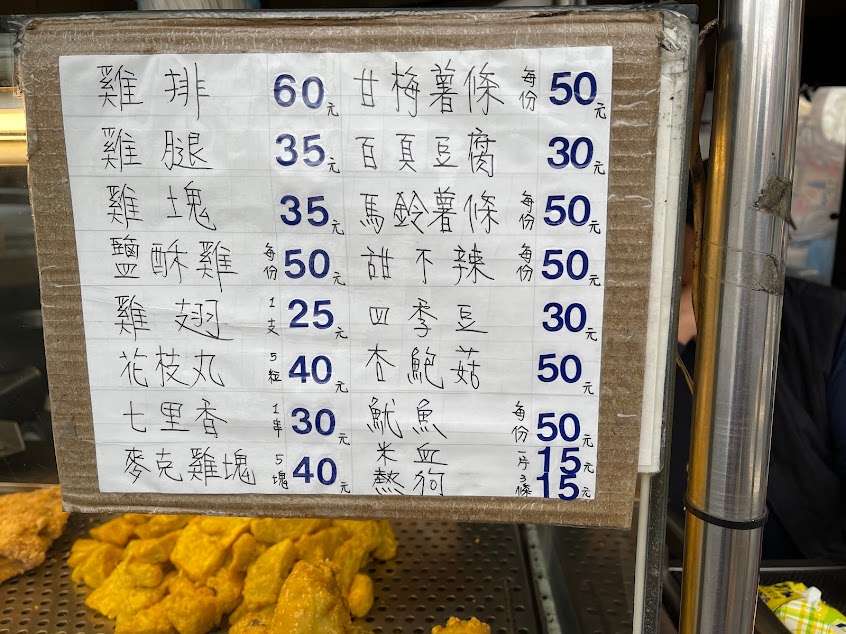 雞排 60元
雞腿 35元
雞塊 35元
鹽酥雞 每份 50元
雞翅 1支 25元
花枝丸 5粒 40元
七里香 1串 30元
麥克雞塊 5塊 40元
甘梅薯條 每份 50元
百頁豆腐 30元
馬鈴薯條 每份 50元
甜不辣 每份 50元
四季豆 30元
杏鮑菇 50元
魷魚 每份 50元
米血 一片 15元
熱狗 3條 15元